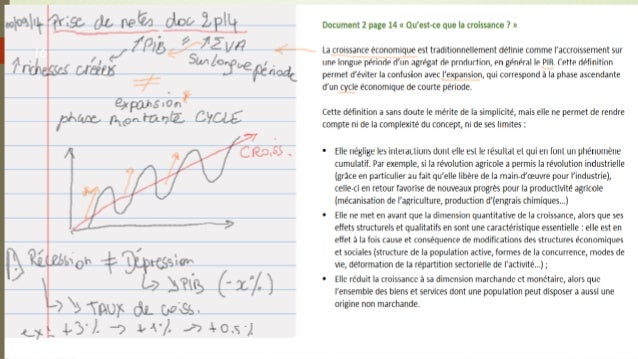 09/09/14 Prise de notes doc 2 p14
↑ PIB = ↑ Σ VA
↑ richesses créées
Sur longue période
≠
expansion
phase montante CYCLE
CROISS.
Récession ≠ Dépression
↳ ↘ PIB (-x%)
↳ ↘ TAUX de croiss.
ex: +3% → +1% → +0.5%
Document 2 page 14 « Qu'est-ce que la croissance ? »
La croissance économique est traditionnellement définie comme l'accroissement sur
une longue période d'un agrégat de production, en général le PIB. Cette définition
permet d'éviter la confusion avec l'expansion, qui correspond à la phase ascendante
d'un cycle économique de courte période.
Cette définition a sans doute le mérite de la simplicité, mais elle ne permet de rendre
compte ni de la complexité du concept, ni de ses limites :
• Elle néglige les interactions dont elle est le résultat et qui en font un phénomène
cumulatif. Par exemple, si la révolution agricole a permis la révolution industrielle
(grâce en particulier au fait qu'elle libère de la main-d'œuvre pour l'industrie),
celle-ci en retour favorise de nouveaux progrès pour la productivité agricole
(mécanisation de l'agriculture, production d'(engrais chimiques...)
• Elle ne met en avant que la dimension quantitative de la croissance, alors que ses
effets structurels et qualitatifs en sont une caractéristique essentielle : elle est en
effet à la fois cause et conséquence de modifications des structures économiques
et sociales (structure de la population active, formes de la concurrence, modes de
vie, déformation de la répartition sectorielle de l'activité...) ;
• Elle réduit la croissance à sa dimension marchande et monétaire, alors que
l'ensemble des biens et services dont une population peut disposer a aussi une
origine non marchande.